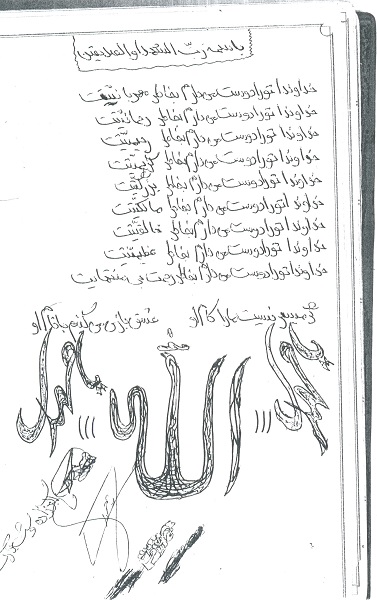 باسمه ربّ الشهداء و الصدیقین
خداوندا تو را دوست می دارم بخاطر مهربانیّت
خداوندا تو را دوست می دارم بخاطر رحمانیّت
خداوندا تو را دوست می دارم بخاطر رحیمیّت
خداوندا تو را دوست می دارم بخاطر کریمیّت
خداوندا تو را دوست می دارم بخاطر بزرگیّت
خداوندا تو را دوست می دارم بخاطر مالکیّت
خداوندا تو را دوست می دارم بخاطر خالقیّت
خداوندا تو را دوست می دارم بخاطر عظیمیّت
خداوندا تو را دوست می دارم بخاطر رحمت بی منتهایت
گر میسر نیست ما را کام او عشق بازی می کنیم با نام او
الله